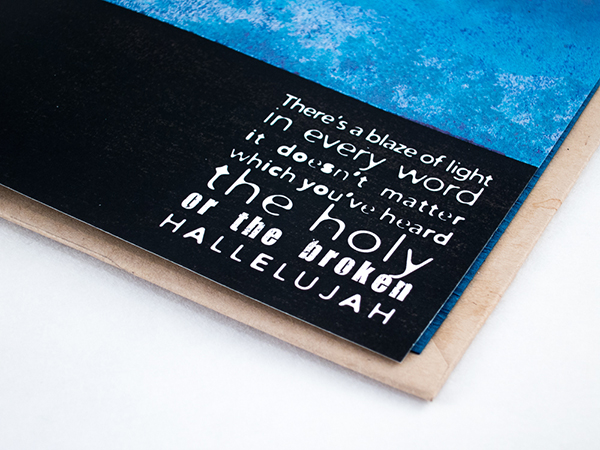 There's a blaze of light
in every word
it doesn't matter
which you've heard
the holy
or the broken
HALLELUJAH